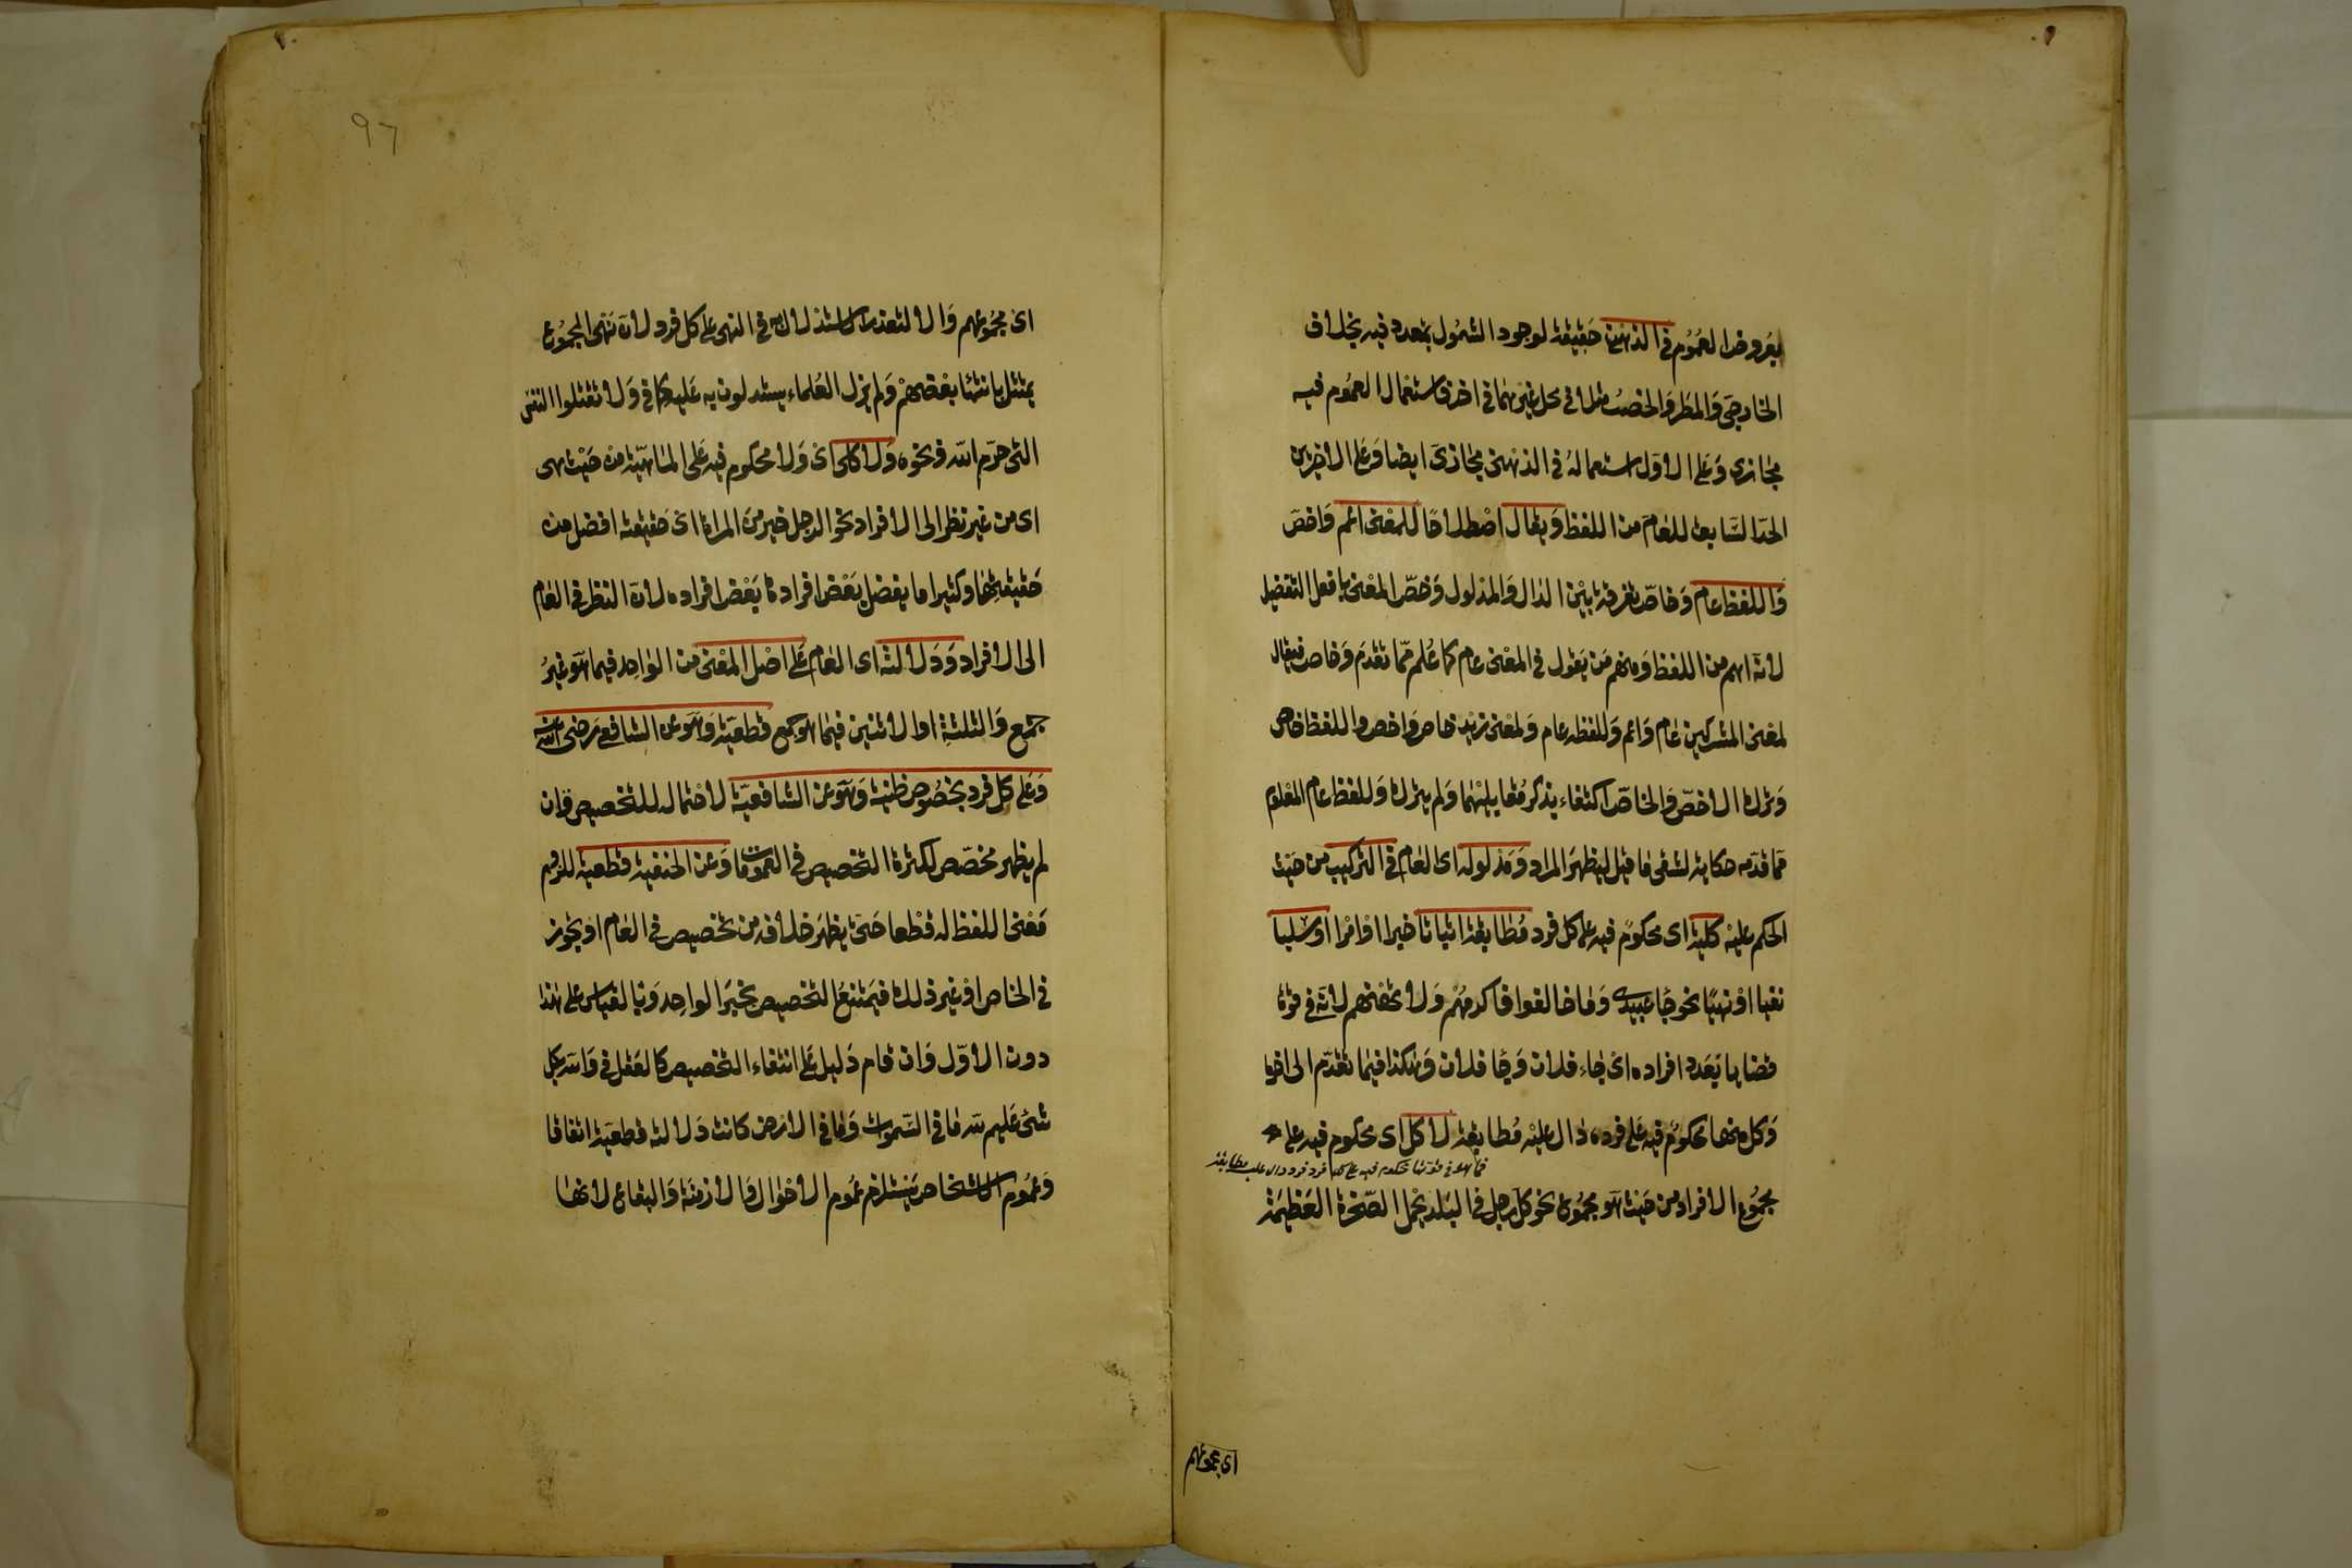 بعروض العموم في الذهني حقيقة لوجود الشمول بتعدد فيه بخلاف
الخارجي والمطر والخصب مثلا في محل غيرهما في اخر فاستعمال العموم فيه
مجازي وعلى الاول استعماله في الذهني مجازي ايضا وعلى الاخيرين
الحد السابق للعام من اللفظ ويقال اصطلاحا للمعنى اعم واخص
واللفظ عام وخاص تفرقة بين الدال والمدلول وخص المعنى بافعل التفضيل
لانه اهم من اللفظ ومنهم من يقول في المعنى عام كما علم مما تقدم وخاص فيقال
لمعنى المشركين عام واعم وللفظه عام ولمعنى زيد خاص واخص وللفظه خاص
وترك الاخص والخاص اكتفاء بذكر مقابليهما ولم يترك وللفظ عام المعلوم
مما قدمه حكاية لشقي ما قيل ليظهر المراد ومدلوله اى العام في التركيب من حيث
الحكم عليه كلية اى محكوم فيه على كل فرد مطابقة اثباتا خبرا او امرا او سلبا
نفيا او نهيا نحو جا عبيدى وما خالفوا فاكرمهم ولا تهنهم لانه في قوة
قضايا بعدد افراده اى جاء فلان وجا فلان وهكذا فيما تقدم الى اخرها
وكل منها محكوم فيه على فرده دال عليه مطابقة لا كل اى محكوم فيه على
فما هو في قوتها محكوم فيه على كل فرد فرد دال عليه مطابقة
مجموع الافراد من حيث هو مجموع نحو كل رجل في البلد يحمل الصخرة العظيمة
اى مجموعهم
97
اى مجموعهم والا لتعذر الاستدلال به في النهى على كل فرد لان نهى المجموع
يمتثل بانتهاء بعضهم ولم يزل العلماء يستدلون به عليه كما في ولا تقتلوا النفس
التى حرم الله ونحوه ولا كلى اى ولا محكوم فيه على الماهية من حيث هى
اى من غير نظر الى الافراد نحو الرجل خير من المراة اى حقيقته افضل من
حقيقتها وكثيرا ما يفضل بعض افرادها بعض افراده لان النظر في العام
الى الافراد ودلالته اى العام على اصل المعنى من الواحد فيما هو غير
جمع والثلثة او الاثنين فيما هو جمع قطعية وهو عن الشافعي رضي الله عنه
وعلى كل فرد بخصوصه ظنية وهو عن الشافعية لاحتماله للتخصيص وان
لم يظهر مخصص لكثرة التخصيص في العمومات وعن الحنفية قطعية للزوم
معنى اللفظ له قطعا حتى يظهر خلافه من تخصيص في العام او تجوز
في الخاص او غير ذلك فيمتنع التخصيص بخبر الواحد وبالقياس على هذا
دون الاول وان قام دليل على انتفاء التخصيص كالعقل في والله بكل
شئ عليم لله ما في السموات وما في الارض كانت دلالته قطعية اتفاقا
وعموم الاشخاص يستلزم عموم الاحوال والازمنة والبقاع لانها